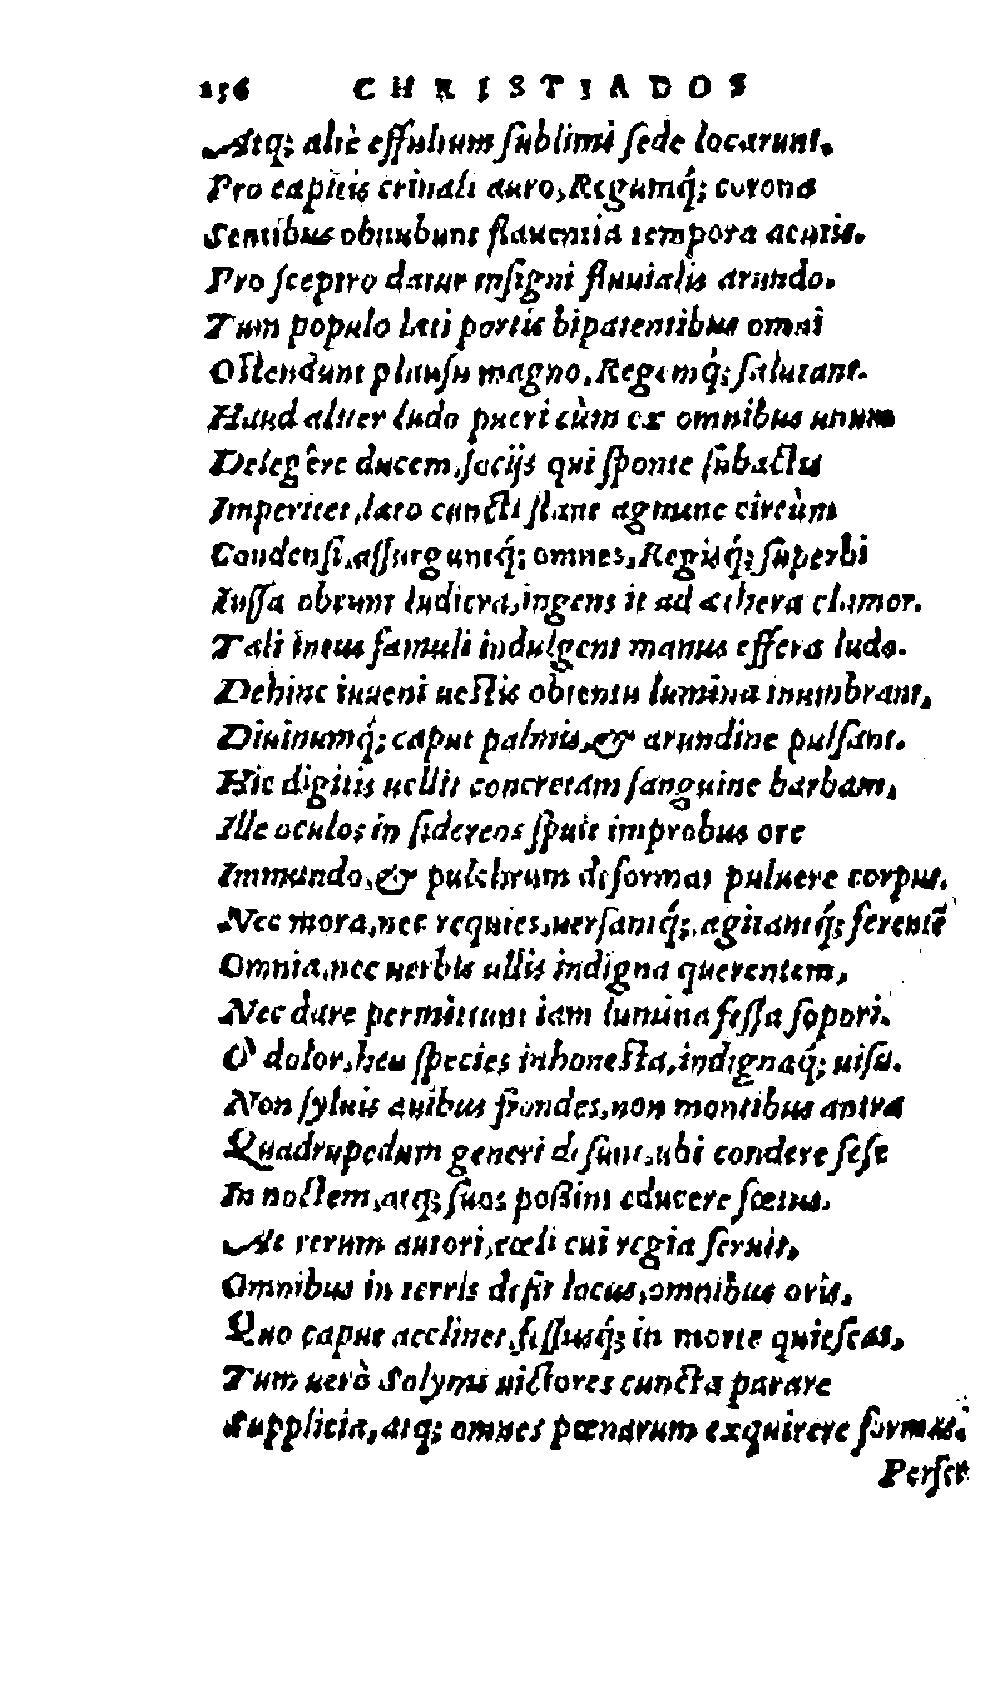 156 CHRISTIADOS
Atq; altè effultum ſublimi ſede locarunt.
Pro capitis crinali auro, Regumq́; corona
Sentibus obnubunt flauentia tempora acutis.
Pro ſceptro datur inſigni fluuialis arundo.
Tum populo lati portis bipatentibus omni
Oſtendunt plauſu magno, Regemq́; ſalutant.
Haud aliter ludo pueri cùm ex omnibus unum
Delegêre ducem, ſocijs qui ſponte ſubactis
Imperitet, lato cuncti ſtant agmine circùm
Condenſi, aſſurguntq́; omnes, Regisq́; ſuperbi
Iuſſa obeunt ludicra, ingens it ad æthera clamor.
Tali intus famuli indulgent manus effera ludo.
Dehinc iuueni ueſtis obtentu lumina inumbrant,
Diuinumq́; caput palmis, & arundine pulſant.
Hic digitis uellit concretam ſanguine barbam,
Ille oculos in ſidereos ſpuit improbus ore
Immundo, & pulchrum deformat puluere corpus.
Nec mora, nec requies, uerſantq́;, agitantq́; ferentē
Omnia, nec uerbis ullis indigna querentem,
Nec dare permittunt iam lumina feſſa ſopori.
O' dolor, heu ſpecies inhoneſta, indignaq́; uiſu.
Non ſyluis auibus frondes, non montibus antra
Quadrupedum generi deſunt, ubi condere ſeſe
In noctem, atq; ſuos poßint educere fœtus.
At rerum autori, cœli cui regia ſeruit,
Omnibus in terris deſit locus, omnibus oris,
Quo caput acclinet, feſſusq́; in morte quieſcat,
Tum uerò Solymi uictores cuncta parare
Supplicia, atq; omnes pœnarum exquirere formas.
Perſer